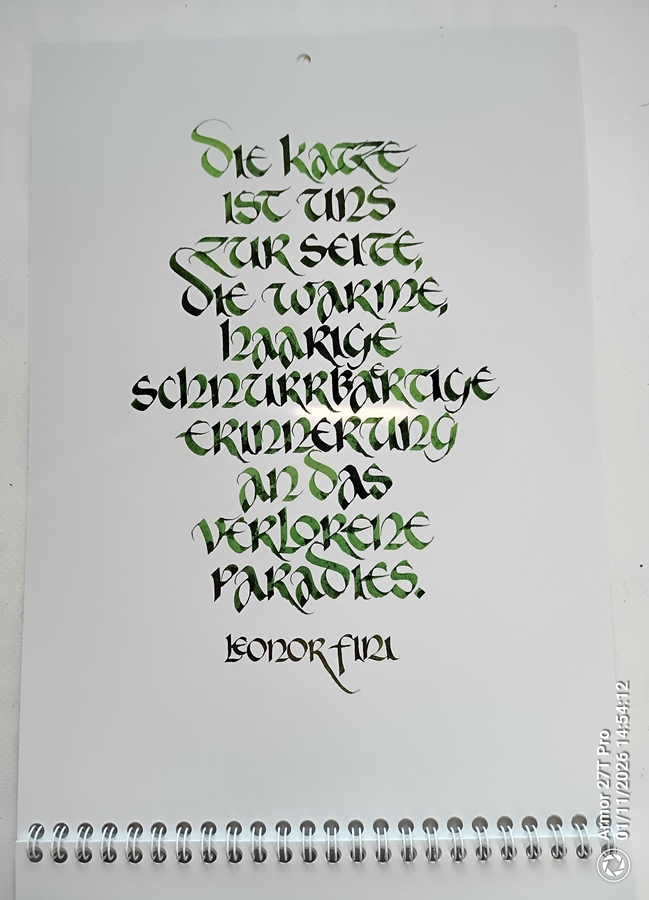 Die Katze
ist uns
zur Seite,
die warme,
haarige
schnurrbärtige
Erinnerung
an das
verlorene
Paradies.
Leonor Fini
Armor 27T Pro
01/11/2026 14:54:12